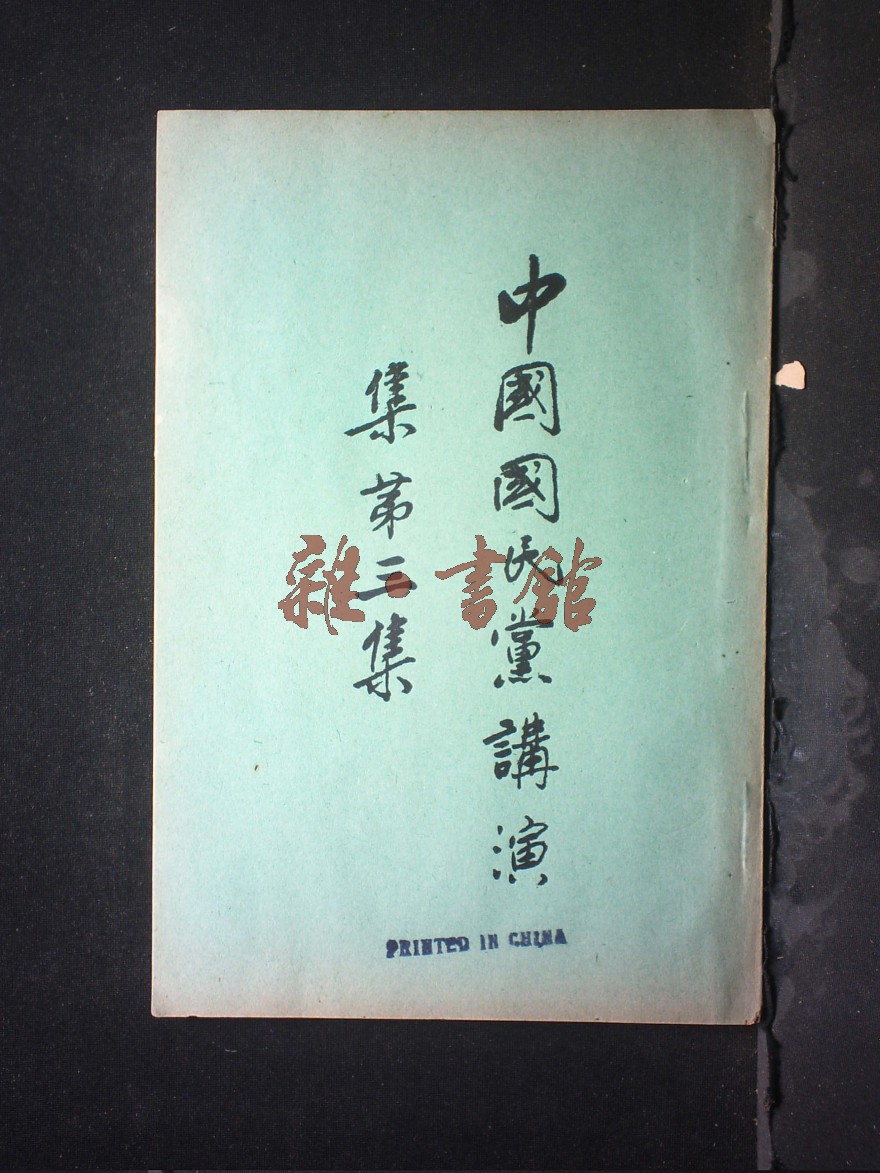 中國國民黨講演
集第三集
雜·書館
PRINTED IN CHINA